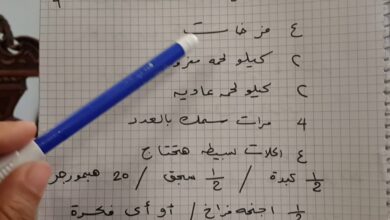 ٤ فرخات
٢ كيلو لحمه مفرومه
٢ كيلو لحمه عاديه
4 مرات سمك بالعدد
٤ اكلات بسيطه هتحتاج
½ كبدة / ½ سجق / 20 همبورجر
½ اجنحه فراخ / أو أي فكرة